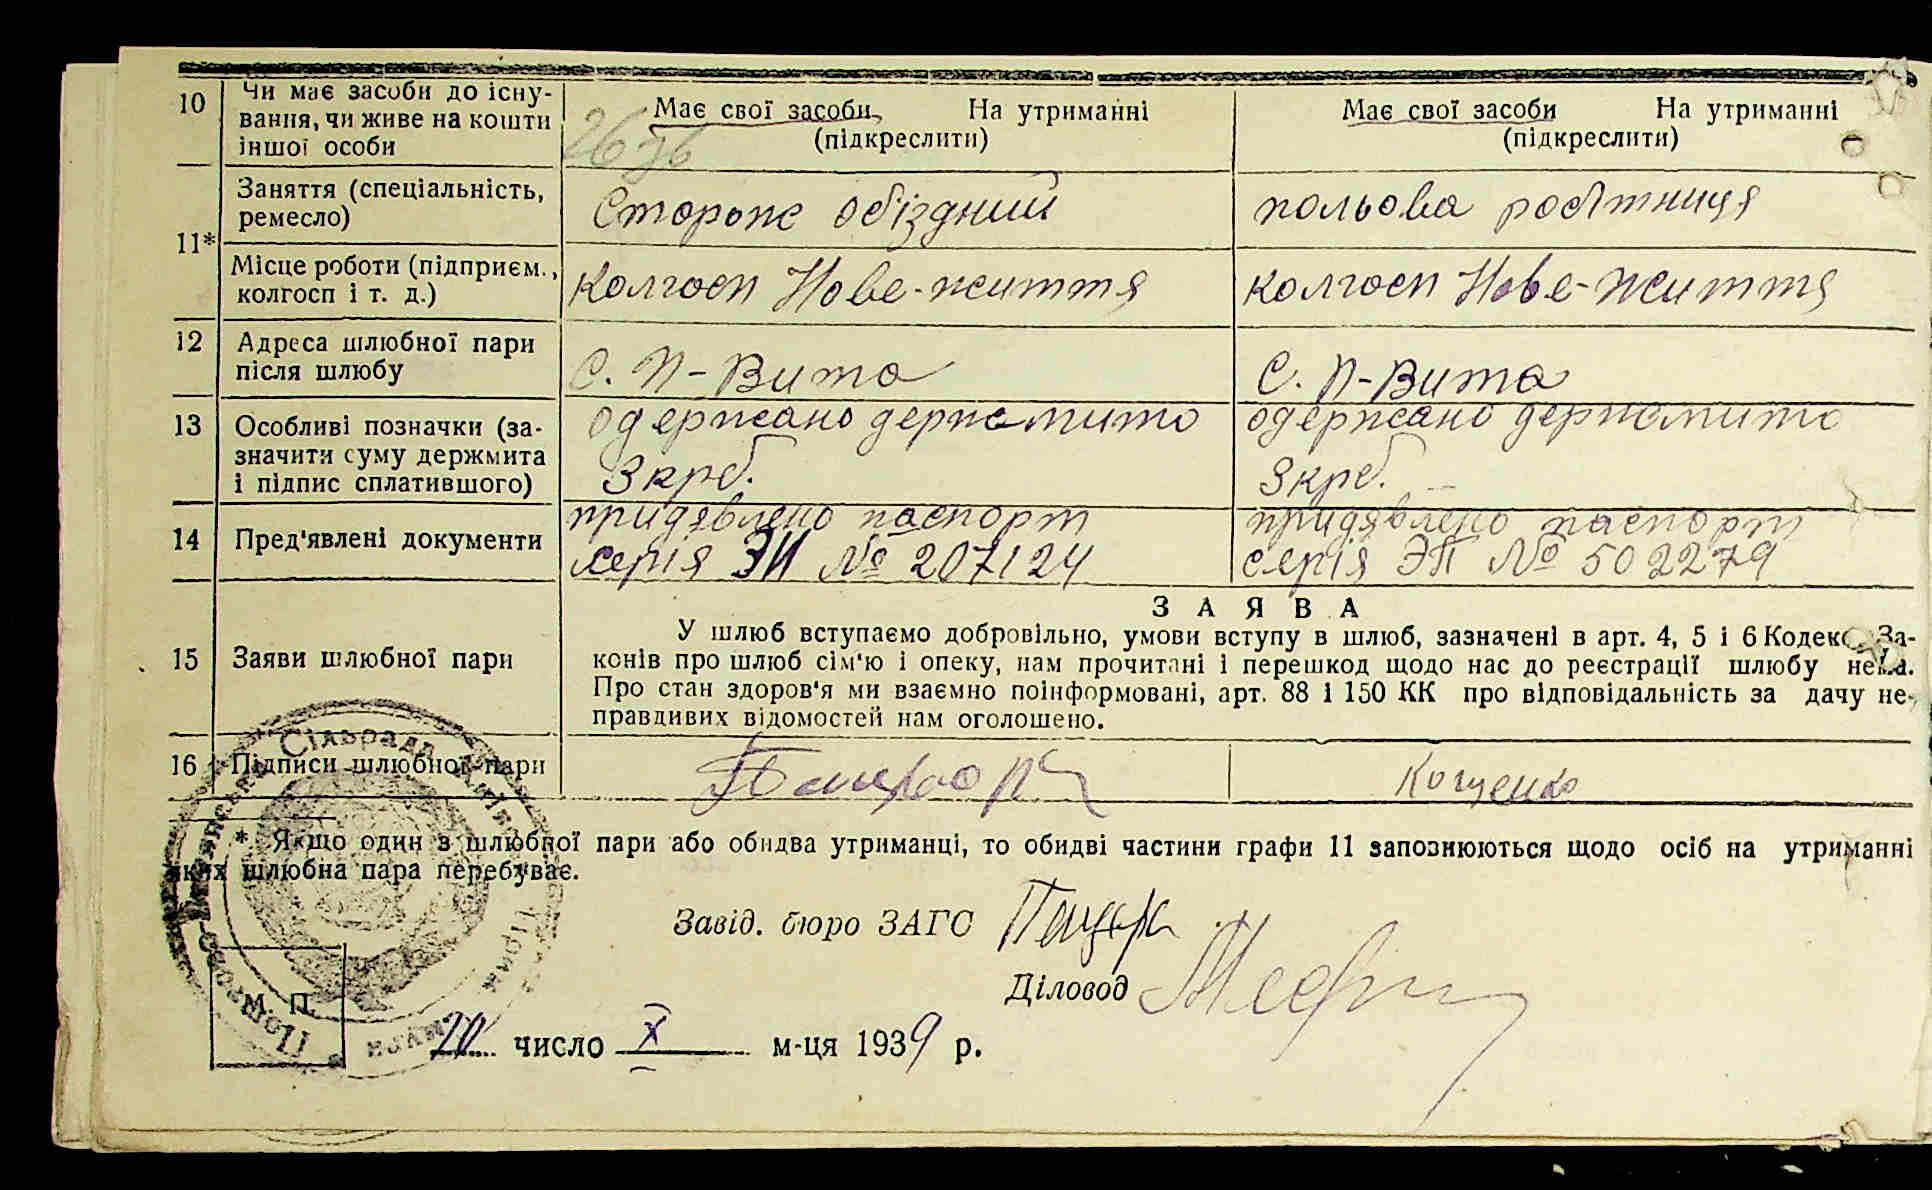 10
Чи має засоби до існу-
вання, чи живе на кошти
іншої особи
Має свої засоби, На утриманні
(підкреслити)
Має свої засоби На утриманні
(підкреслити)
11*
Заняття (спеціальність,
ремесло)
Сторож обіздний
польова робітниця
Місце роботи (підприєм.,
колгосп і т. д.)
колгосп Нове-життя
колгосп Нове-життя
12
Адреса шлюбної пари
після шлюбу
С. П-Вита
С. П-Вита
13
Особливі позначки (за-
значити суму держмита
і підпис сплатившого)
одержано держмито
3 крб.
одержано держмито
3 крб.
14
Пред'явлені документи
придявлено паспорт
серія ЭИ № 207124
придявлено паспорт
серія ЭП № 502279
З А Я В А
15
Заяви шлюбної пари
У шлюб вступаємо добровільно, умови вступу в шлюб, зазначені в арт. 4, 5 і 6 Кодекс За-
конів про шлюб сім'ю і опеку, нам прочитані і перешкод щодо нас до реєстрації шлюбу нема.
Про стан здоров'я ми взаємно поінформовані, арт. 88 і 150 КК про відповідальність за дачу не-
правдивих відомостей нам оголошено.
16
Підписи шлюбної пари
Кощенко
* Якщо один з шлюбної пари або обидва утриманці, то обидві частини графи 11 заповнюються щодо осіб на утриманні
яких шлюбна пара перебуває.
Завід. бюро ЗАГС
Діловод
М. П.
Сільрада
20 число X м-ця 1939 р.